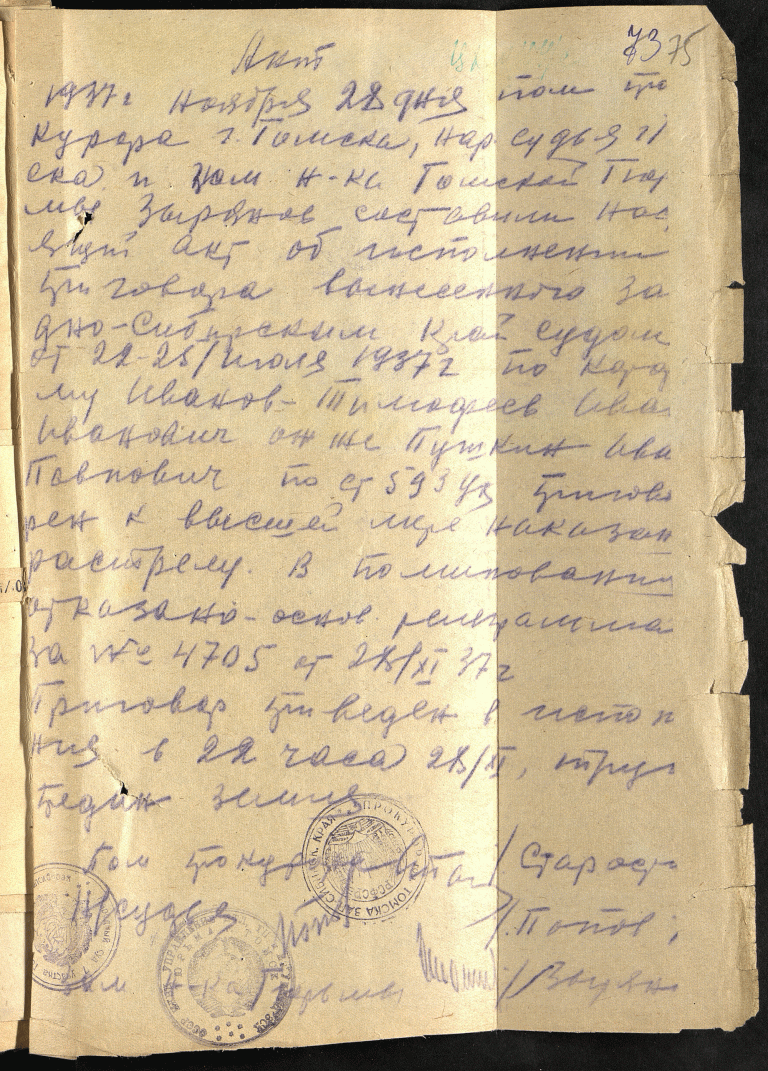 73 75
Акт
1937г ноября 28 дня пом про
курора г. Томска, нар судья
ска и зам н-ка Томской Тюр
мы Зырянов составили нас
ящий акт об исполнении
приговора вынесенного За
дно-Сибирским Край судом
от 22-25/июля 1937г по кото
му Иванов-Тимофеев Ива
Иванович он же Пушкин Ива
Павлович по ст 593 ук пригово
рен к высшей мере наказан
растрелу. В помиловании
отказано-основ
за № 4705 от 28/XI 37г
Приговор приведен в испол
ния в 22 часа 28/XI, труп
предан земле
Пом прокур /Старост
Нсудья /Попов/
Зам Н-ка Тюрьмы /Зырян